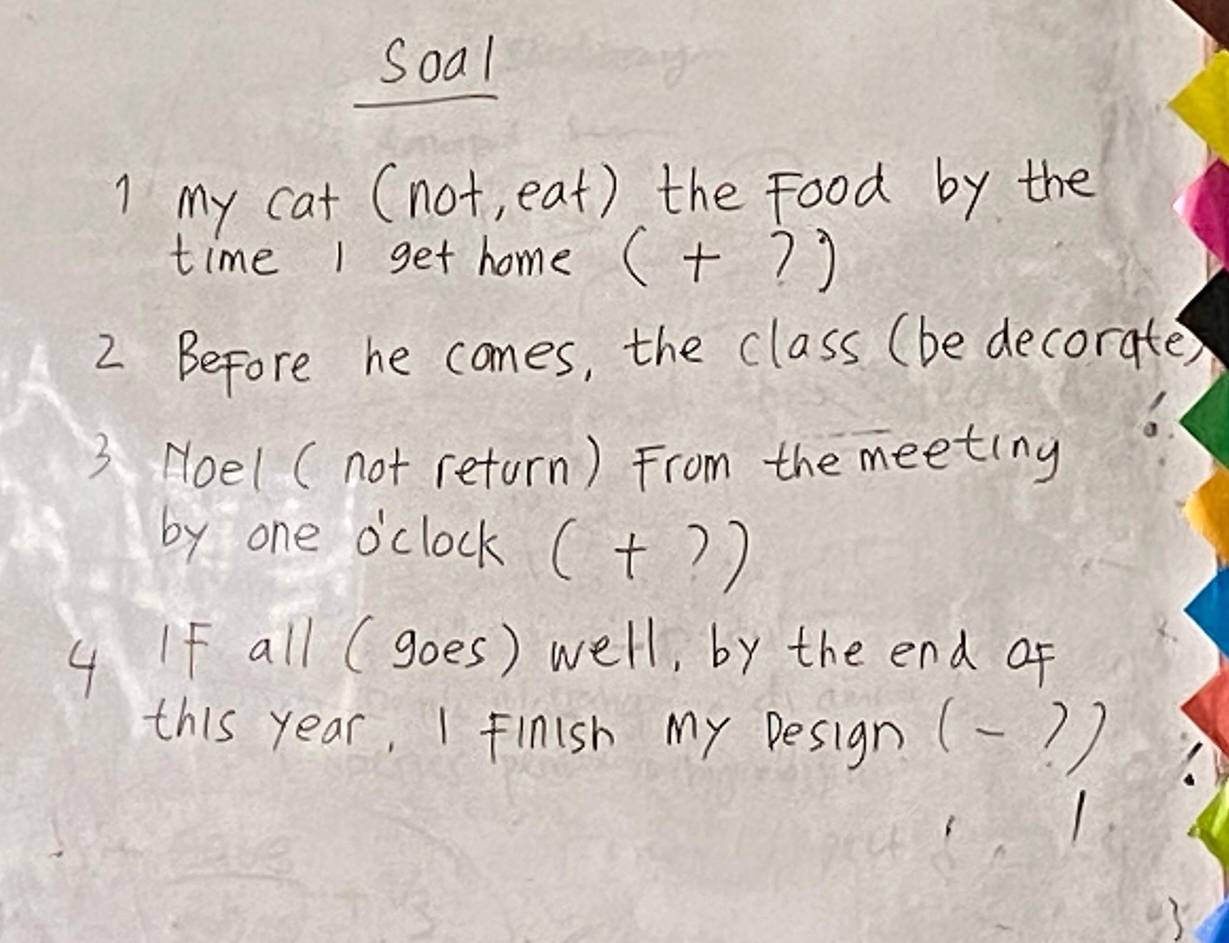 Soal
1 my cat (not, eat) the Food by the
time I get home ( + ?)
2 Before he comes, the class (be decorate)
3 Noel ( not return) From the meeting
by one o'clock ( + ?)
4 IF all ( goes) well, by the end of
this year, I Finish my Design ( - ?)